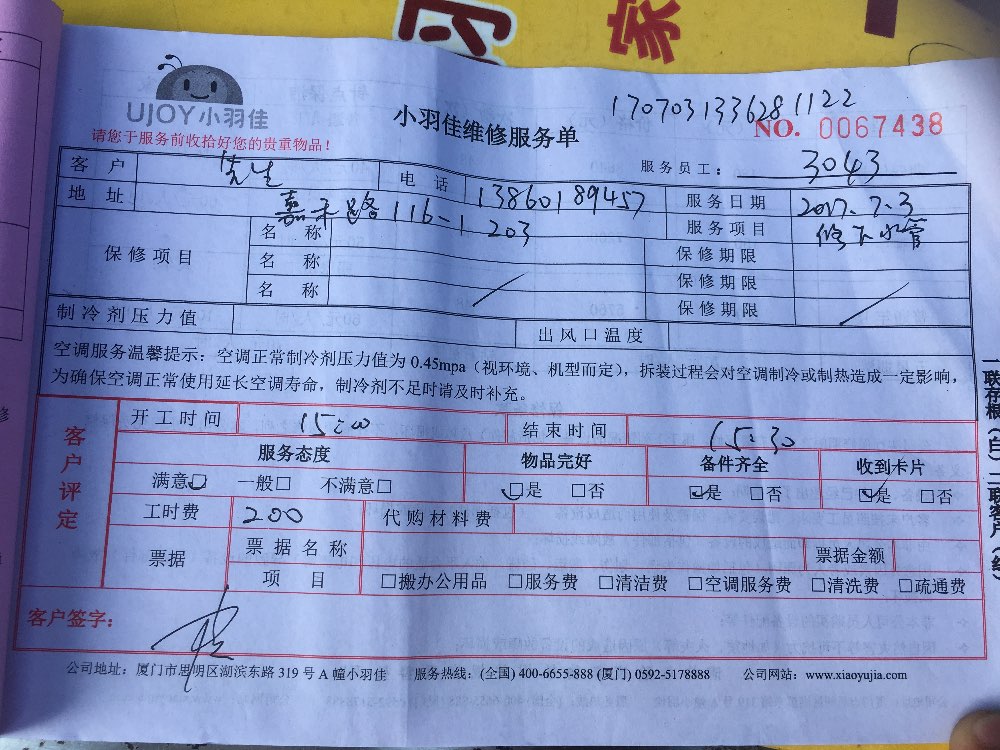 家
UJOY小羽佳
请您于服务前收拾好您的贵重物品！
小羽佳维修服务单
170703133628 1122
NO. 0067438
服务员工： 3043
客 户 先生 电 话 13860189457 服务日期 2017.7.3
地 址 嘉禾路116-1 203 服务项目 修下水管
保修项目 名 称 保修期限
名 称 保修期限
名 称 保修期限
制冷剂压力值 出风口温度
空调服务温馨提示：空调正常制冷剂压力值为 0.45mpa（视环境、机型而定），拆装过程会对空调制冷或制热造成一定影响，
为确保空调正常使用延长空调寿命，制冷剂不足时请及时补充。
客户评定
开工时间 15:00 结束时间 15:30
服务态度 物品完好 备件齐全 收到卡片
满意□ 一般□ 不满意□ □是 □否 □是 □否 □是 □否
工时费 200 代购材料费
票据 票据名称 票据金额
项 目 □搬办公用品 □服务费 □清洁费 □空调服务费 □清洗费 □疏通费
客户签字：
公司地址：厦门市思明区湖滨东路 319 号 A 幢小羽佳 服务热线：(全国) 400-6655-888 (厦门) 0592-5178888 公司网站：www.xiaoyujia.com
一联存根（白）二联客户（红）